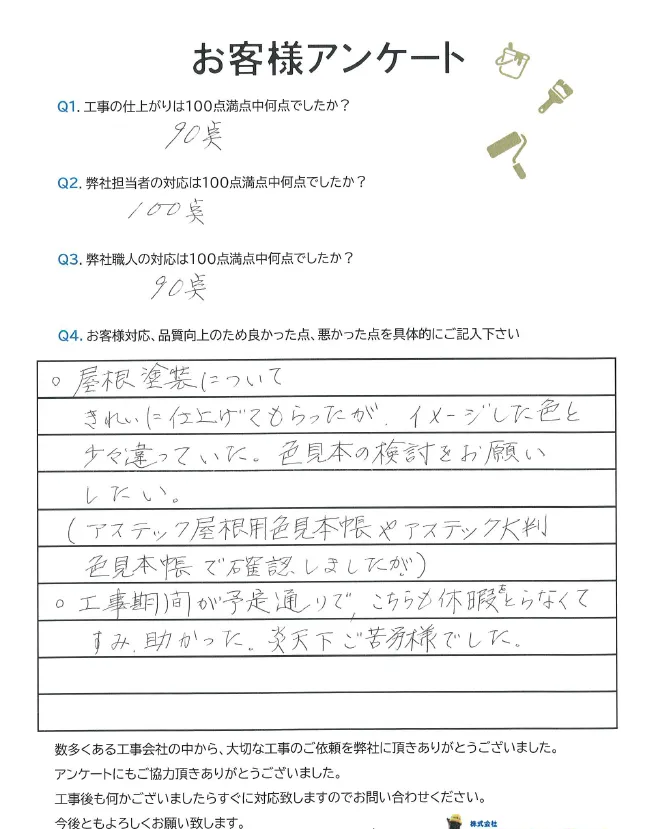 お客様アンケート
Q1. 工事の仕上がりは100点満点中何点でしたか？
90点
Q2. 弊社担当者の対応は100点満点中何点でしたか？
100点
Q3. 弊社職人の対応は100点満点中何点でしたか？
90点
Q4. お客様対応、品質向上のため良かった点、悪かった点を具体的にご記入下さい
○ 屋根塗装について
きれいに仕上げてもらったが、イメージした色と
少々違っていた。色見本の検討をお願い
したい。
(アステック屋根用色見本帳やアステック大判
色見本帳で確認しましたが)
○ 工事期間が予定通りで、こちらも休暇をとらなくて
すみ、助かった。炎天下ご苦労様でした。
数多くある工事会社の中から、大切な工事のご依頼を弊社に頂きありがとうございました。
アンケートにもご協力頂きありがとうございました。
工事後も何かございましたらすぐに対応致しますのでお問い合わせください。
今後ともよろしくお願い致します。
株式会社